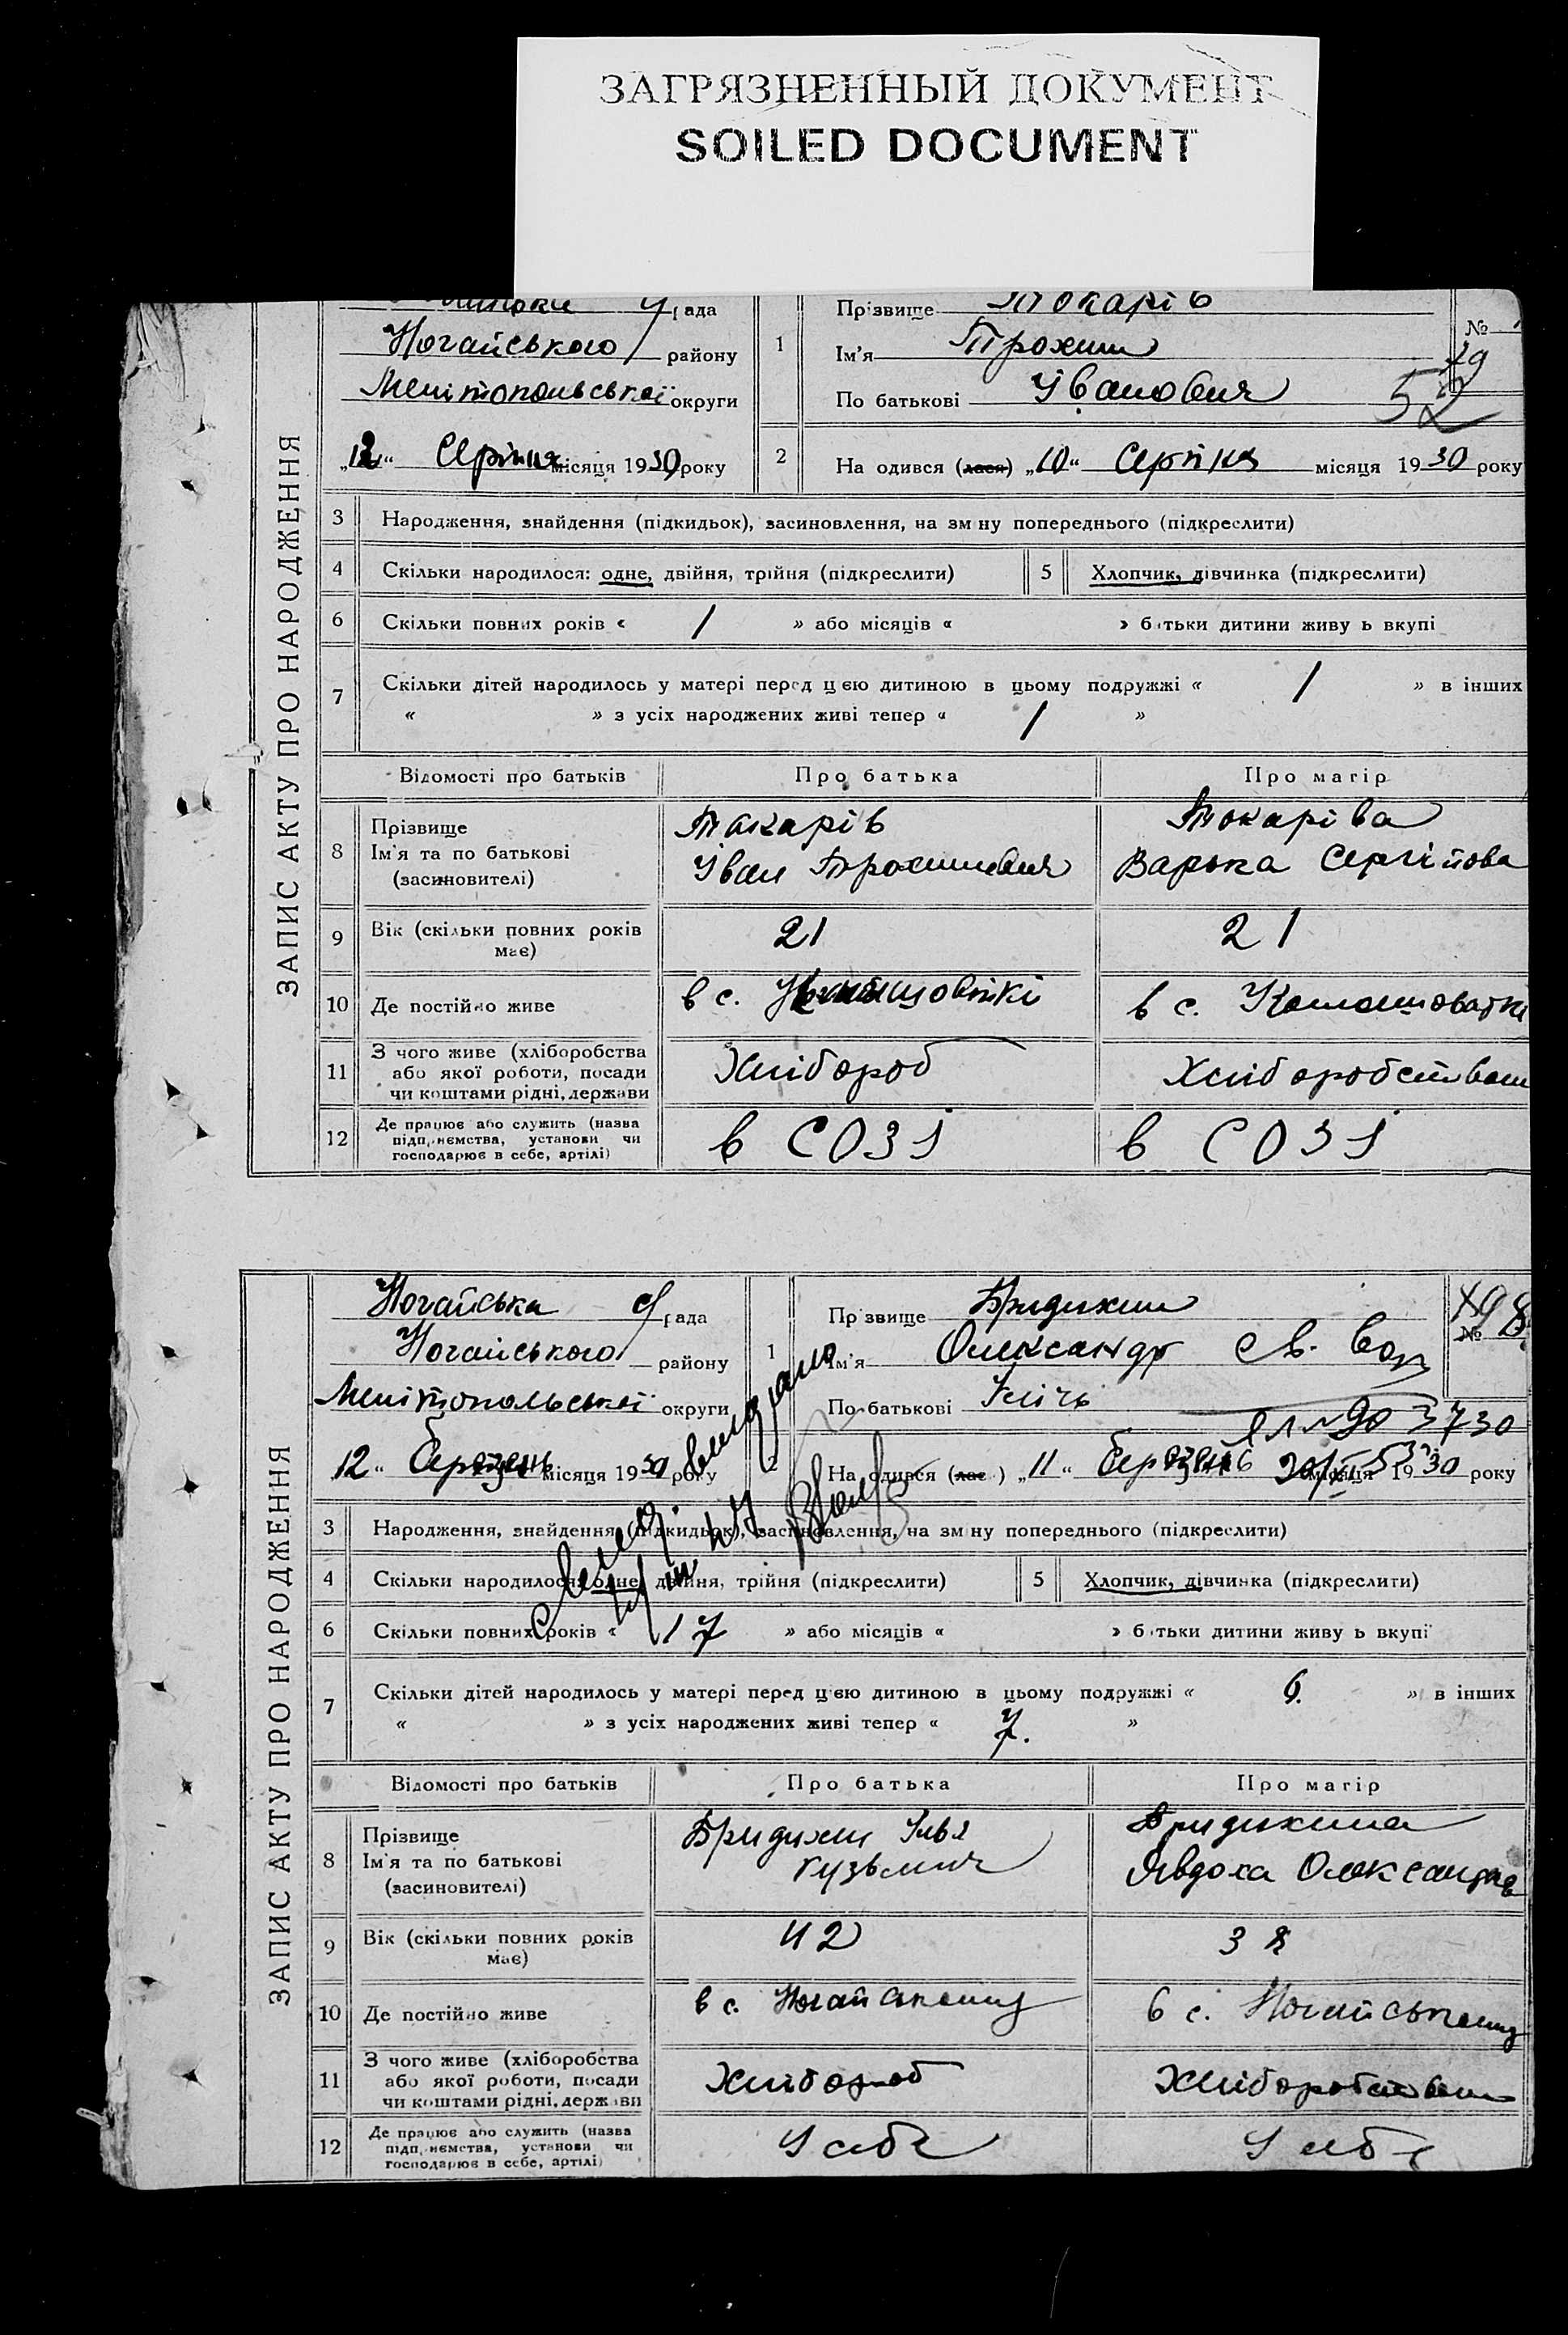 ЗАГРЯЗНЕННЫЙ ДОКУМЕНТ
SOILED DOCUMENT
ЗАПИС АКТУ ПРО НАРОДЖЕННЯ
рада
Ногайського району
Мелітопольської округи
„12“ Серпня місяця 1930 року
1 Прізвище Токарів
Ім'я Трохим
По батькові Іванович
№
52
2 На одився (лася) „10“ Серпня місяця 1930 року
3 Народження, знайдення (підкидьок), засиновлення, на зм ну попереднього (підкреслити)
4 Скільки народилося: одне, двійня, трійня (підкреслити)
5 Хлопчик, дівчинка (підкреслити)
6 Скільки повних років « 1 » або місяців « » батьки дитини живу ь вкупі
7 Скільки дітей народилось у матері перед цією дитиною в цьому подружжі « 1 » в інших
« » з усіх народжених живі тепер « 1 »
Відомості про батьків Про батька Про матір
8 Прізвище
Ім'я та по батькові
(засиновителі)
Токарів
Іван Трохимович
Токаріва
Варька Сергіївна
9 Вік (скільки повних років має) 21 21
10 Де постійно живе в с. в с.
11 З чого живе (хліборобства
або якої роботи, посади
чи коштами рідні, держави
Хлібороб Хліборобством
12 Де працює або служить (назва
підприємства, установи чи
господарює в себе, артілі)
в СОЗі в СОЗі
ЗАПИС АКТУ ПРО НАРОДЖЕННЯ
Ногайська с/рада
Ногайського району
Мелітопольської округи
12“ Березень місяця 1930 року
1 Прізвище Бридихин
Ім'я Олександр
По батькові Ілічь
№
2 На одився (лас ) „11“ Березень місяця 1930 року
3 Народження, знайдення (підкидьок), засиновлення, на зм ну попереднього (підкреслити)
4 Скільки народилося: одне, двійня, трійня (підкреслити)
5 Хлопчик, дівчинка (підкреслити)
6 Скільки повних років « 17 » або місяців « » батьки дитини живу ь вкупі
7 Скільки дітей народилось у матері перед цією дитиною в цьому подружжі « 6. » в інших
« » з усіх народжених живі тепер « 7. »
Відомості про батьків Про батька Про матір
8 Прізвище
Ім'я та по батькові
(засиновителі)
Бридихин Ілья
Кузьмич
Бридихина
Явдоха Олександр
9 Вік (скільки повних років має) 42 38
10 Де постійно живе в с. Ногайському в с. Ногайському
11 З чого живе (хліборобства
або якої роботи, посади
чи коштами рідні, держави
Хлібороб Хліборобством
12 Де працює або служить (назва
підприємства, установи чи
господарює в себе, артілі)
У себе У себе